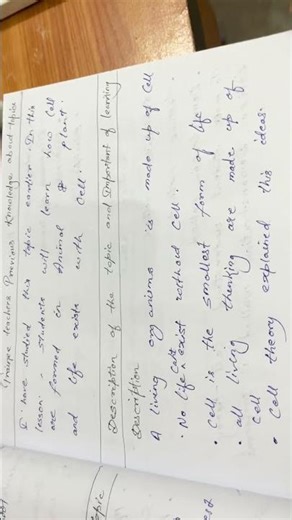 teachers Previous Knowledge about topic
I have studied this topic earlier. In this
lesson students will learn how Cell
are formed in Animal & plant.
and life exists with Cell.
Description of the topic and Important of learning
Description
A living organisms is made up of Cell
• No life can't exist without Cell.
• Cell is the smallest form of life
• all living thinking are made up of
Cell
• Cell theory explained this ideas.
opic